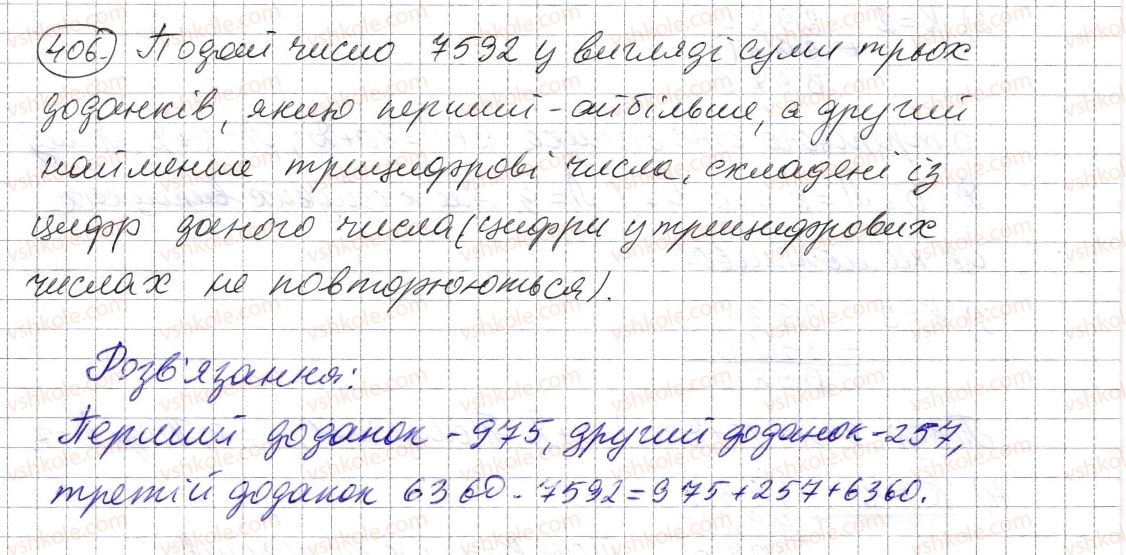 406. Подай число 7592 у вигляді суми трьох
доданків, якию перший - айбільше, а другий
найменше трицифрові числа, складені із
цифр даного числа (цифри у трицифрових
числах не повторюються).
Розв'язання:
Перший доданок - 975, другий доданок - 257,
третій доданок 6360 - 7592 = 975 + 257 + 6360.